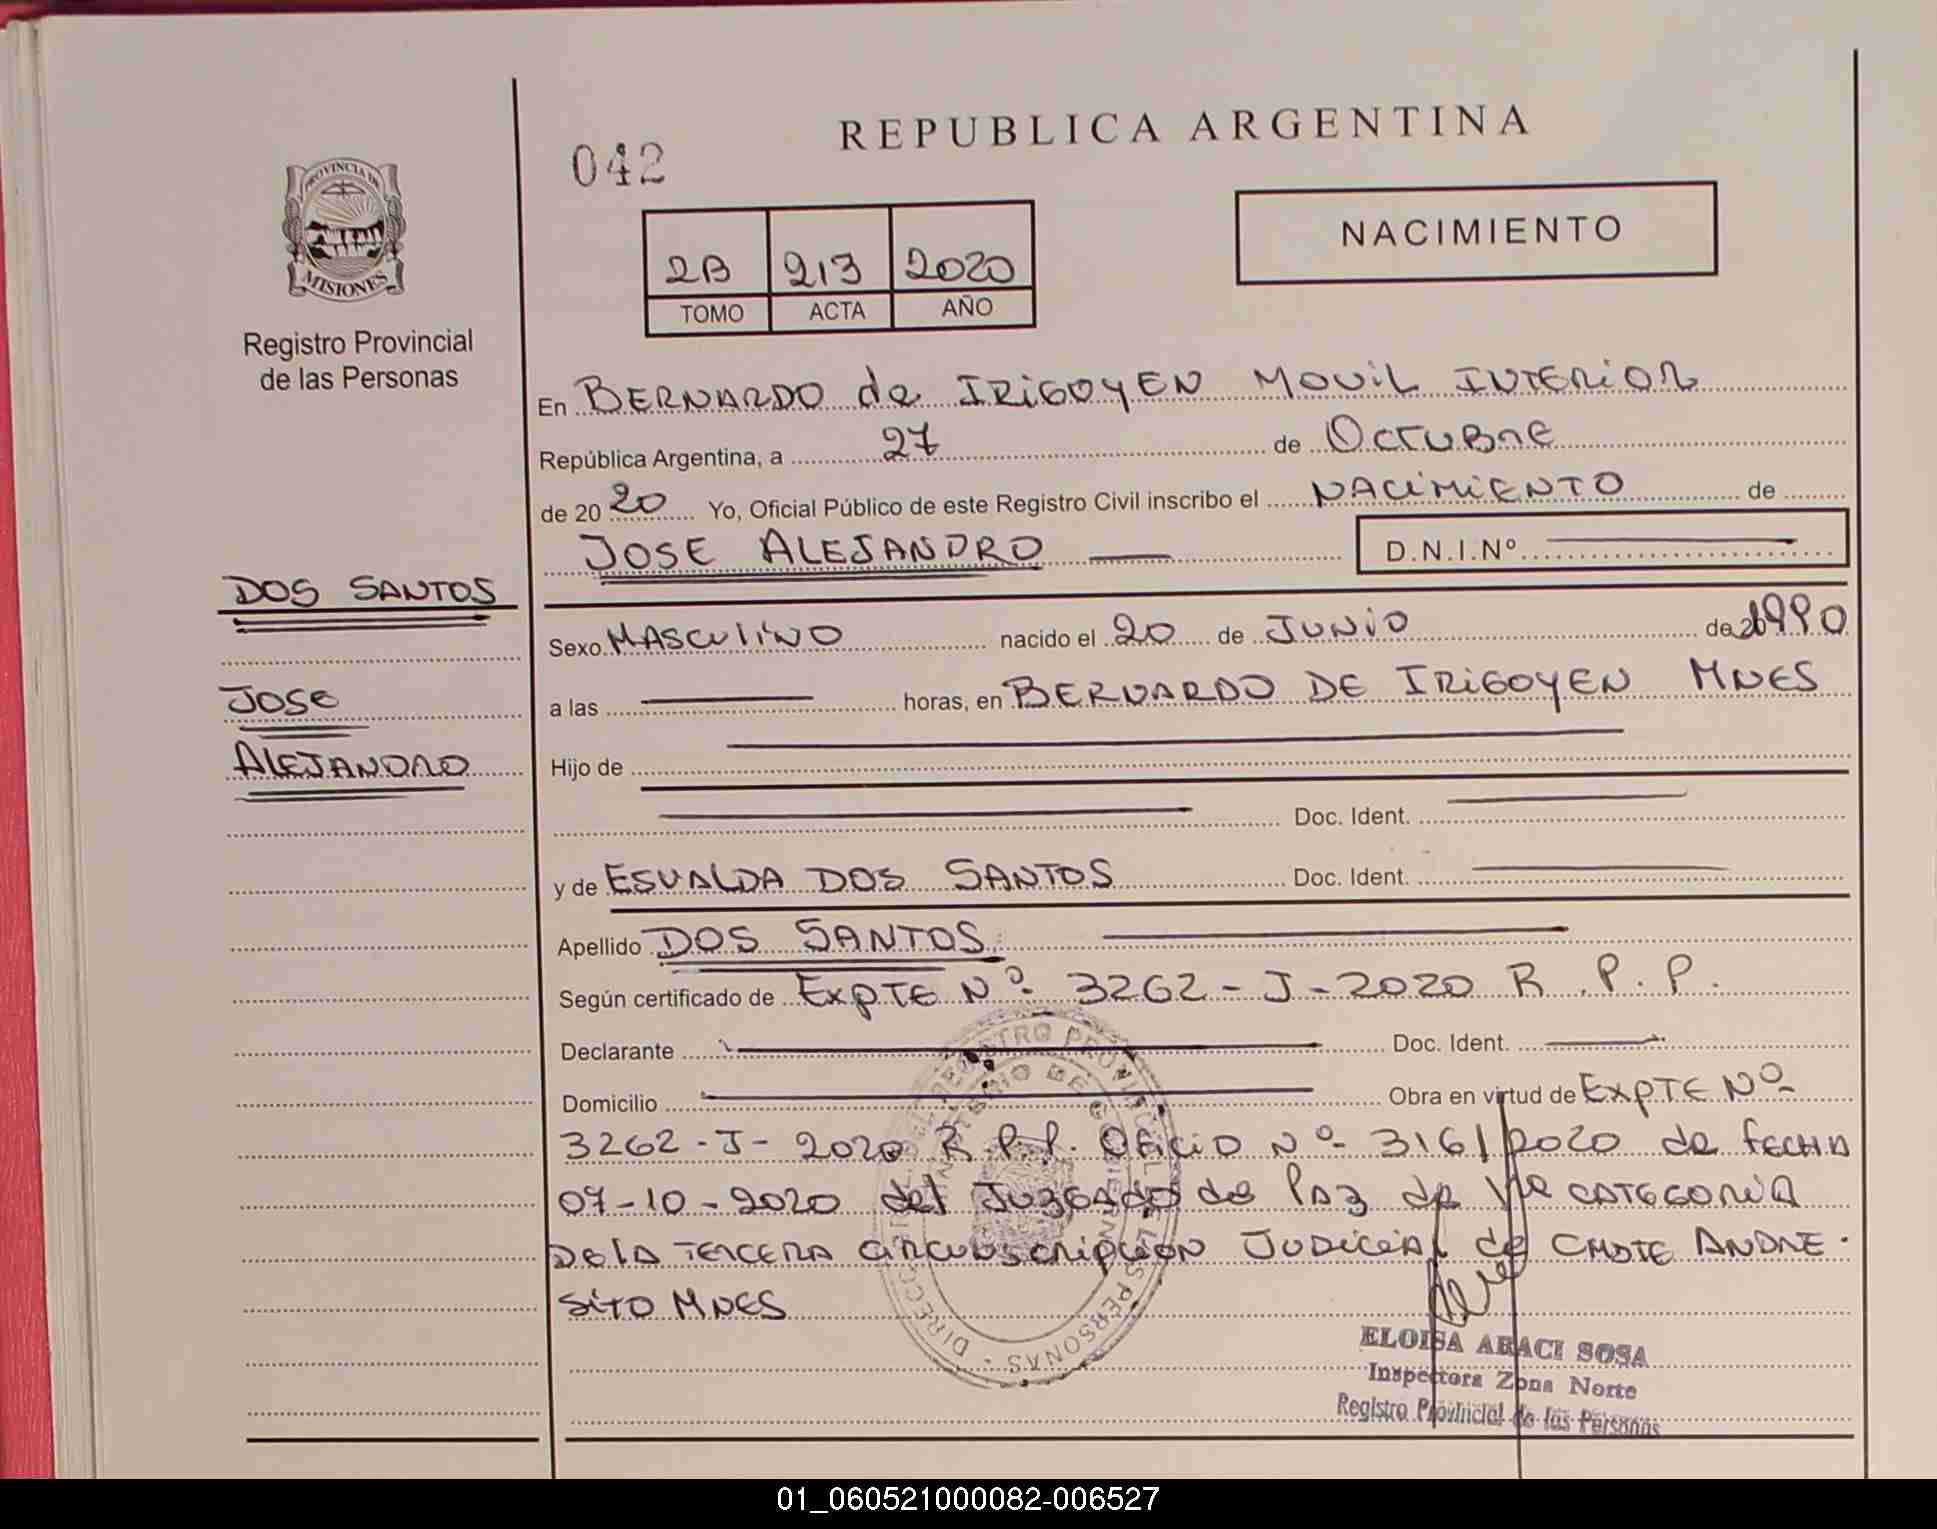 REPUBLICA ARGENTINA
042
PROVINCIA DE
MISIONES
Registro Provincial
de las Personas
2B 213 2020
TOMO ACTA AÑO
NACIMIENTO
En BERNARDO de IRIGOYEN MOVIL INTERIOR
República Argentina, a 27 de OCTUBRE
de 20 20 Yo, Oficial Público de este Registro Civil inscribo el NACIMIENTO de
JOSE ALEJANDRO D.N.I.Nº
DOS SANTOS
JOSE
ALEJANDRO
Sexo MASCULINO nacido el 20 de JUNIO de 1990
a las horas, en BERNARDO DE IRIGOYEN MNES
Hijo de
Doc. Ident.
y de ESVALDA DOS SANTOS Doc. Ident.
Apellido DOS SANTOS
Según certificado de EXPTE Nº 3262-J-2020 R.P.P.
Declarante Doc. Ident.
Domicilio Obra en virtud de EXPTE Nº
3262-J-2020 R.P.P. OFICIO Nº 316/2020 de FECHA
07-10-2020 del JUZGADO de PAZ de CATEGORIA
DE LA TERCERA CIRCUNSCRIPCION JUDICIAL de CMDTE ANDRE-
SITO MNES
ELOISA ARACI SOSA
Inspectora Zona Norte
Registro Provincial de las Personas
01_060521000082-006527